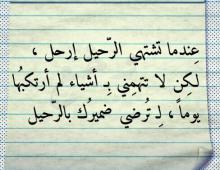 عِندما تشتهي الرّحيل إرحل ،
لكِن لا تتهمِني بِـ أشياء لم أرتكبُها
يوماً ، لِـ تُرضي ضميرُك بالرّحيل